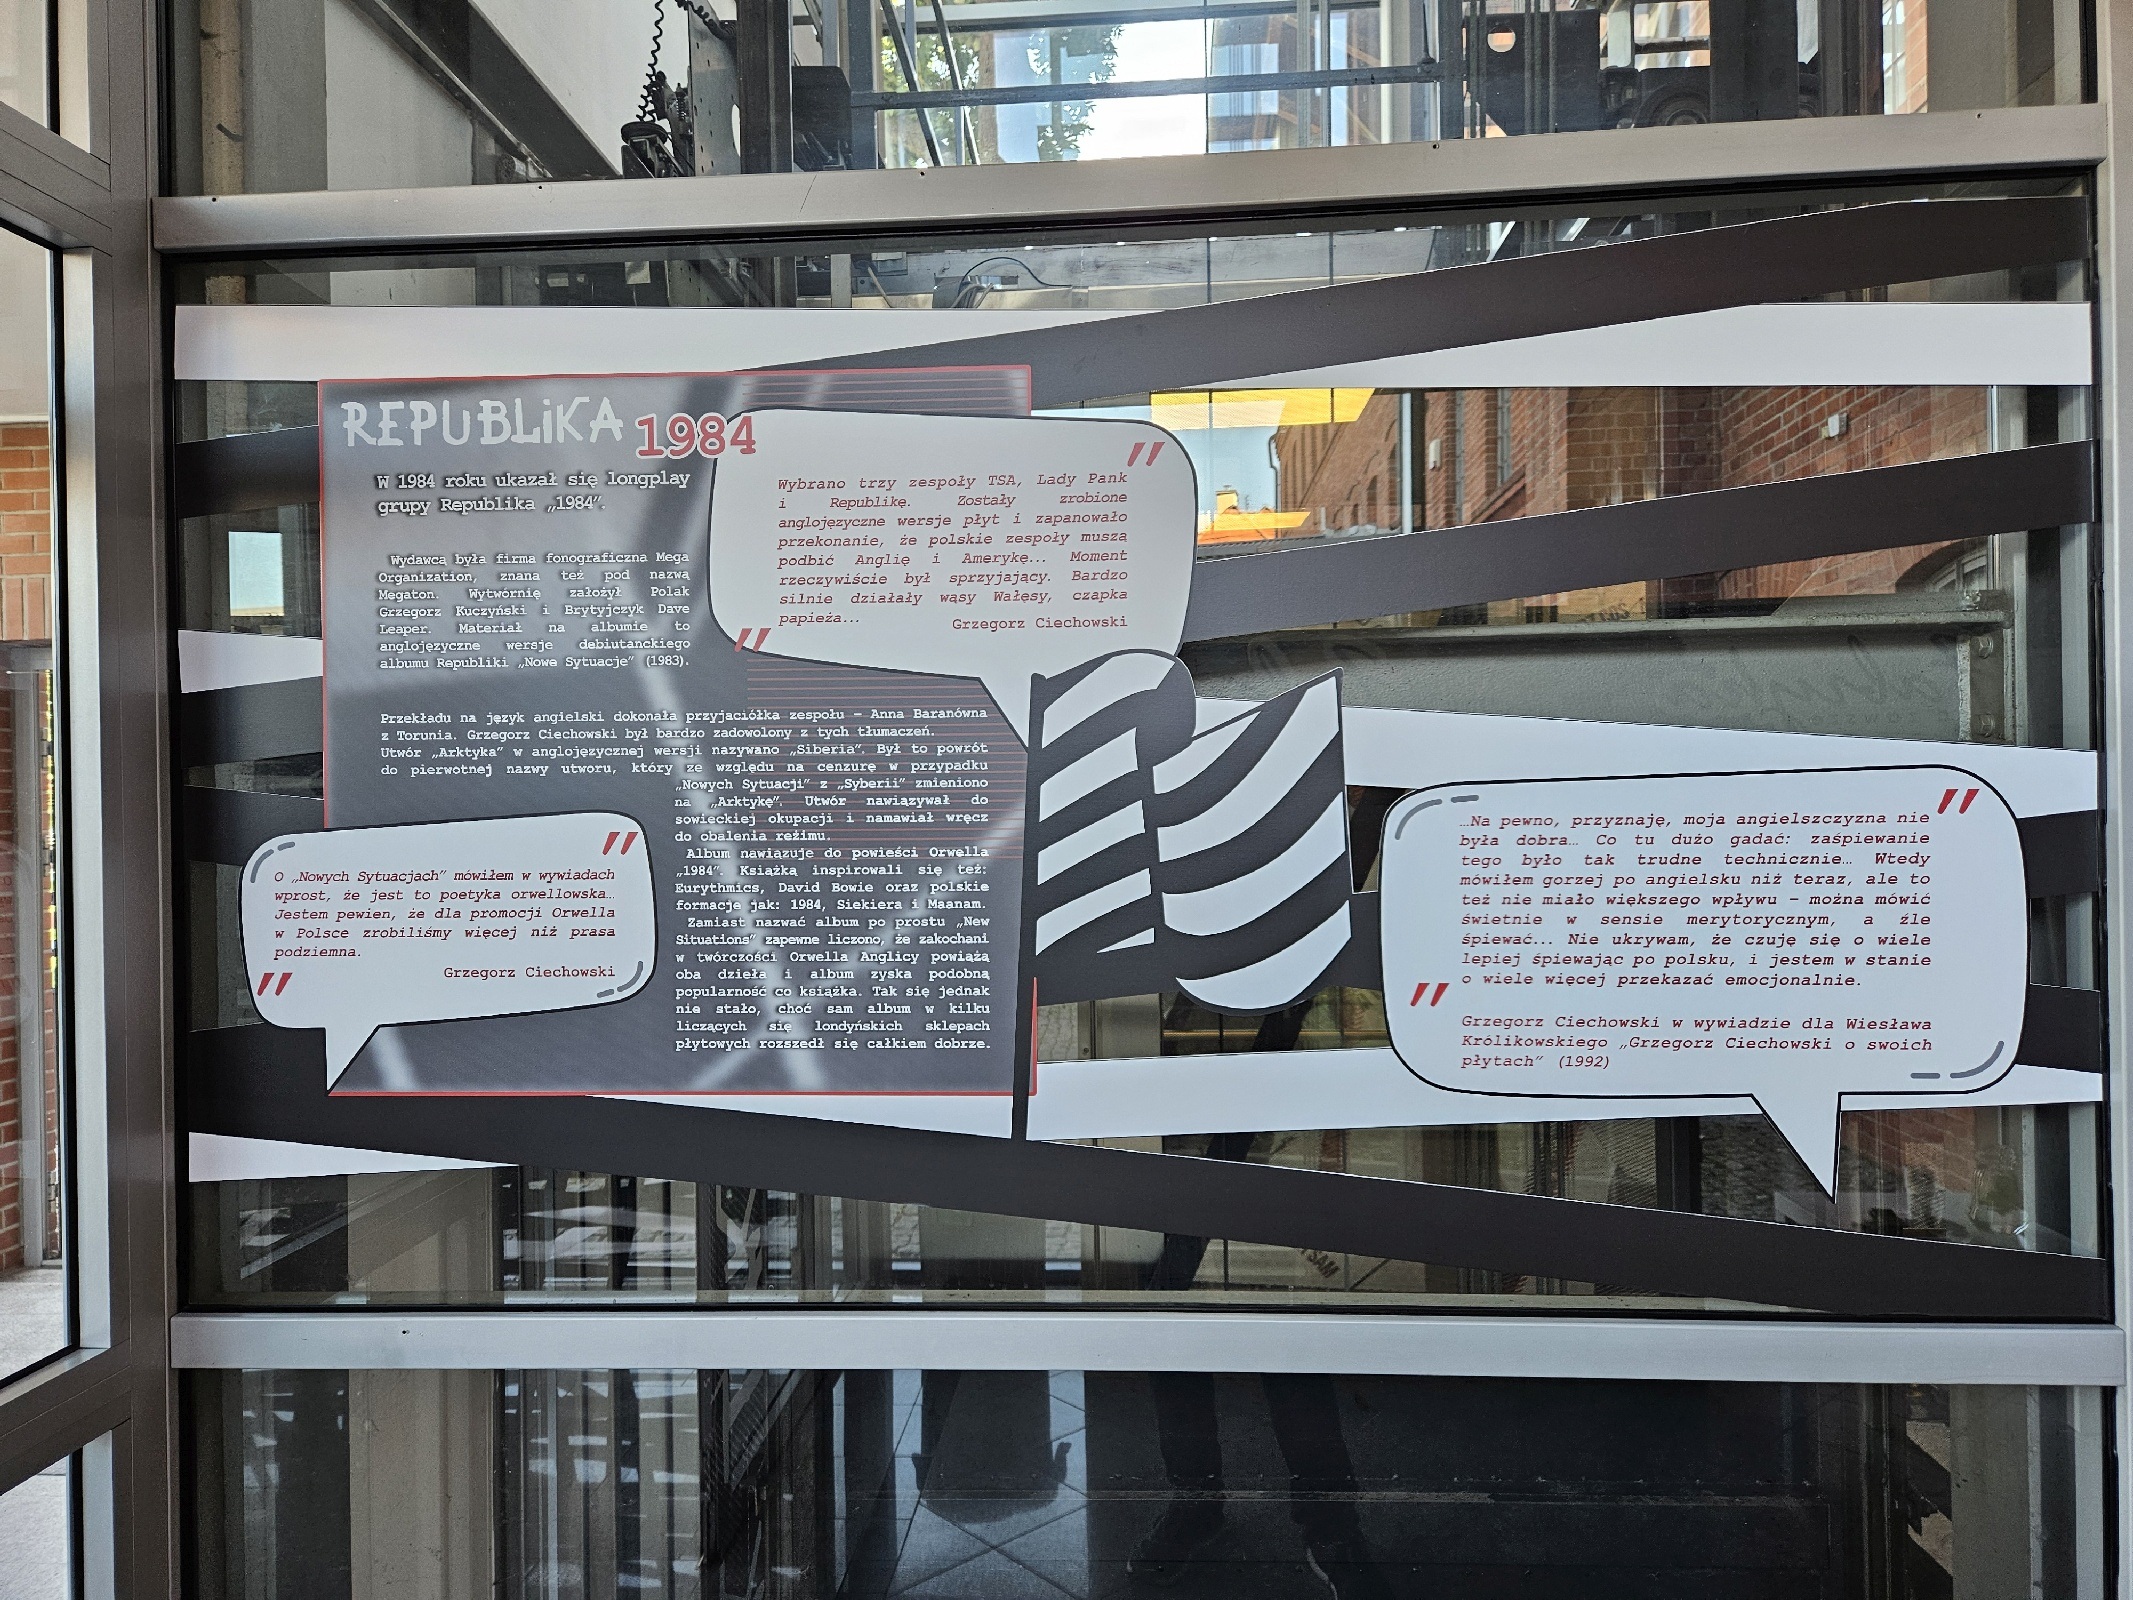 REPUBLiKA 1984
W 1984 roku ukazał się longplay
grupy Republika „1984”.
Wydawcą była firma fonograficzna Mega
Organization, znana też pod nazwą
Megaton. Wytwórnię założył Polak
Grzegorz Kuczyński i Brytyjczyk Dave
Leaper. Materiał na albumie to
anglojęzyczne wersje debiutanckiego
albumu Republiki „Nowe Sytuacje” (1983).
Przekładu na język angielski dokonała przyjaciółka zespołu – Anna Baranówna
z Torunia. Grzegorz Ciechowski był bardzo zadowolony z tych tłumaczeń.
Utwór „Arktyka” w anglojęzycznej wersji nazywano „Siberia”. Był to powrót
do pierwotnej nazwy utworu, który ze względu na cenzurę w przypadku
„Nowych Sytuacji” z „Syberii” zmieniono
na „Arktykę”. Utwór nawiązywał do
sowieckiej okupacji i namawiał wręcz
do obalenia reżimu.
Album nawiązuje do powieści Orwella
„1984”. Książką inspirowali się też:
Eurythmics, David Bowie oraz polskie
formacje jak: 1984, Siekiera i Maanam.
Zamiast nazwać album po prostu „New
Situations” zapewne liczono, że zakochani
w twórczości Orwella Anglicy powiążą
oba dzieła i album zyska podobną
popularność co książka. Tak się jednak
nie stało, choć sam album w kilku
liczących się londyńskich sklepach
płytowych rozszedł się całkiem dobrze.
"
Wybrano trzy zespoły TSA, Lady Pank
i Republikę. Zostały zrobione
anglojęzyczne wersje płyt i zapanowało
przekonanie, że polskie zespoły muszą
podbić Anglię i Amerykę... Moment
rzeczywiście był sprzyjający. Bardzo
silnie działały wąsy Wałęsy, czapka
papieża...
Grzegorz Ciechowski
"
"
O „Nowych Sytuacjach” mówiłem w wywiadach
wprost, że jest to poetyka orwellowska…
Jestem pewien, że dla promocji Orwella
w Polsce zrobiliśmy więcej niż prasa
podziemna.
Grzegorz Ciechowski
"
"
…Na pewno, przyznaję, moja angielszczyzna nie
była dobra… Co tu dużo gadać: zaśpiewanie
tego było tak trudne technicznie… Wtedy
mówiłem gorzej po angielsku niż teraz, ale to
też nie miało większego wpływu – można mówić
świetnie w sensie merytorycznym, a źle
śpiewać... Nie ukrywam, że czuję się o wiele
lepiej śpiewając po polsku, i jestem w stanie
o wiele więcej przekazać emocjonalnie.
"
Grzegorz Ciechowski w wywiadzie dla Wiesława
Królikowskiego „Grzegorz Ciechowski o swoich
płytach” (1992)